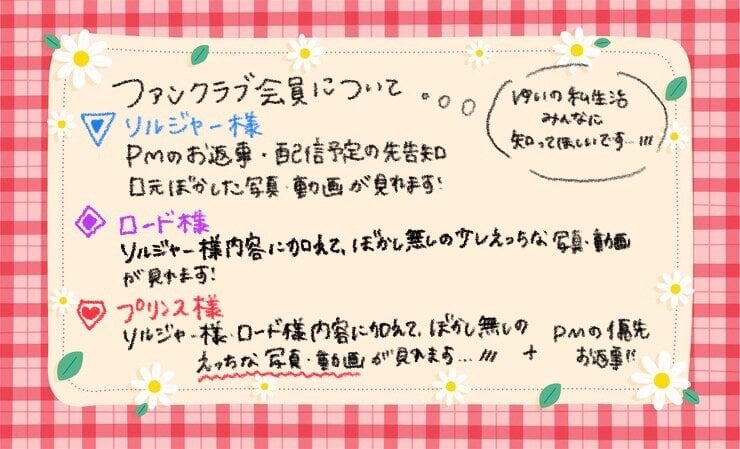 ファンクラブ会員について
ゆいの私生活
みんなに
知ってほしいです…///
ソルジャー様
PMのお返事・配信予定の先告知
口元ぼかした写真・動画が見れます!
ロード様
ソルジャー様内容に加えて、ぼかし無しの少しえっちな写真・動画
が見れます!
プリンス様
ソルジャー様・ロード様内容に加えて、ぼかし無しの
えっちな写真・動画が見れます…///
+
PMの優先
お返事!!